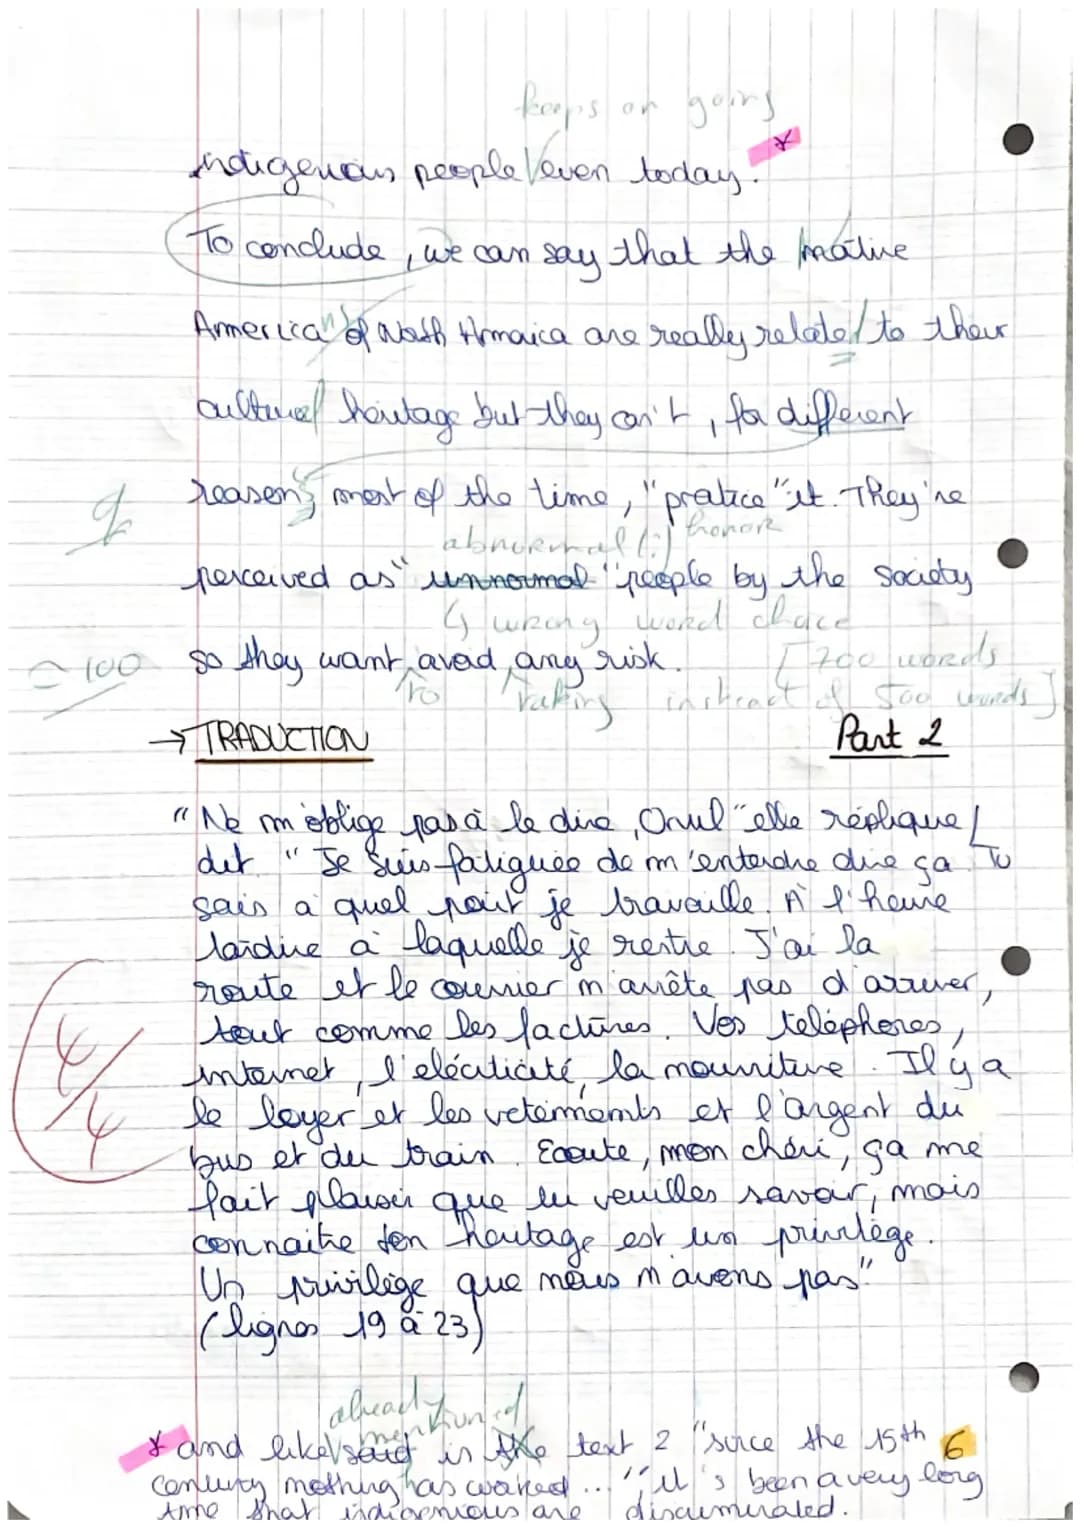 keeps on going
indigenous people even today. *
To conclude, we can say that the native
Americans of North America are really related to their
cultural heritage but they can't, for different
reasons, most of the time, "pratice" it. They're
honor
abnormal (:)
perceived as "unnormal" people by the society
↳ wrong word choice
≃ 100 so they want avoid any risk. [700 words
to taking instead of 500 words]
→ TRADUCTION Part 2
"Ne m'oblige pas à le dire, Orvil" elle réplique /
dit. "Je suis fatiguée de m'entendre dire ça. Tu
sais à quel point je travaille. À l'heure
tardive à laquelle je rentre. J'ai la
route et le courrier n'arrête pas d'arriver,
tout comme les factures. Vos téléphones,
internet, l'elécticité, la nourriture. Il y a
le loyer et les vetements et l'argent du
bus et du train. Ecoute, mon chéri, ça me
fait plaisir que tu veuilles savoir, mais
connaitre ton héritage est un privilège.
Un privilège que nous n'avons pas"
(lignes 19 à 23)
4/4
already
mentionned
* and like said in the text 2 "since the 15th 6
century nothing has worked ...", it's been a very long
time that indigenious are discriminated.